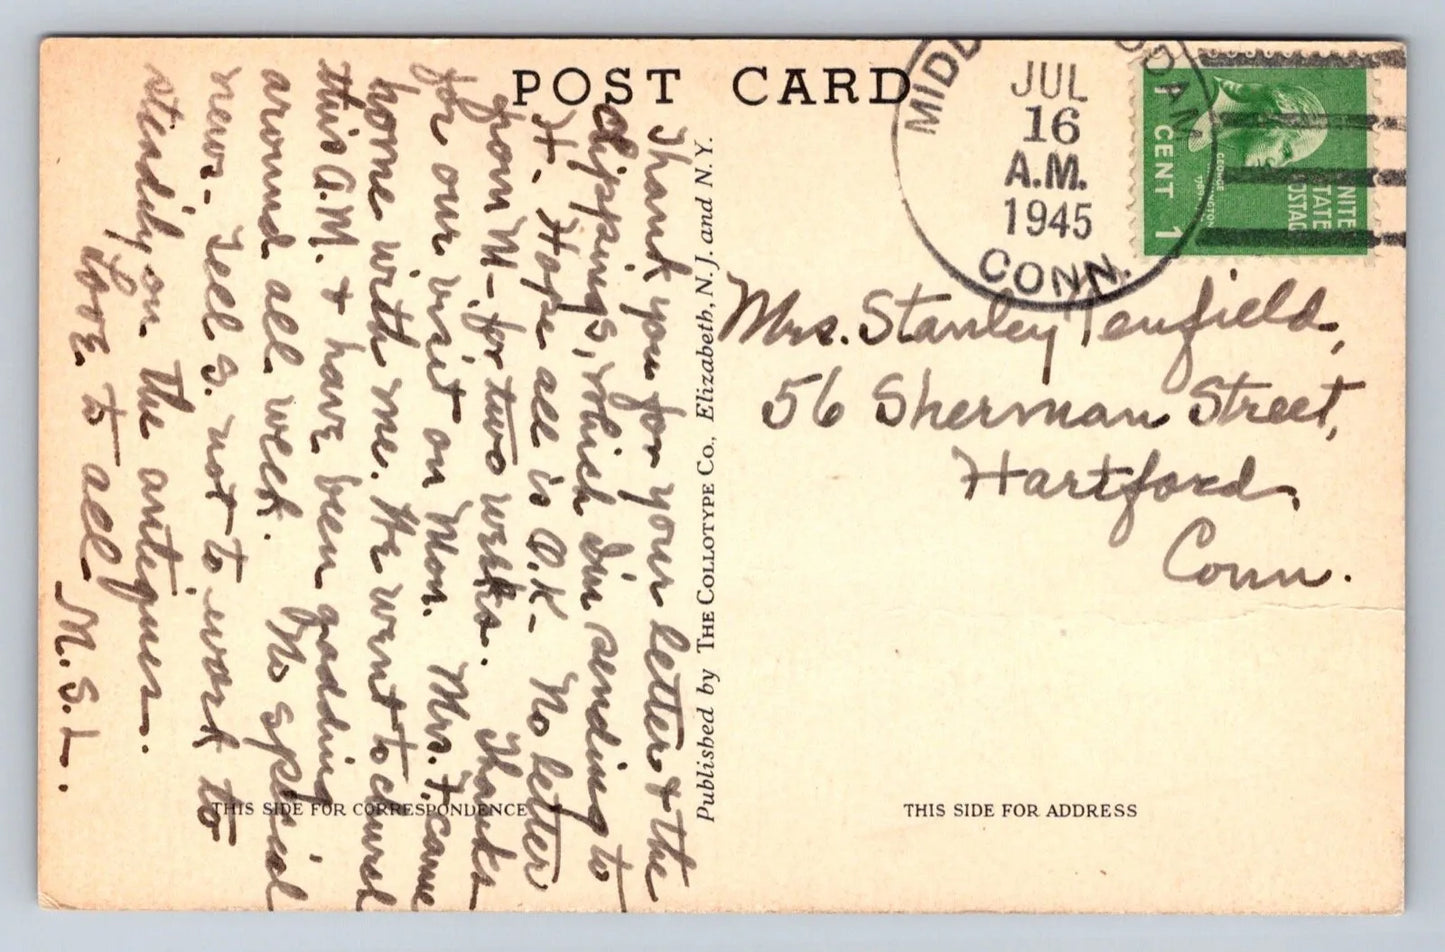 POST CARD
MIDD ODAM
JUL
16
A.M.
1945
CONN.
1 CENT 1
NITE
STATE
OSTAG
GEORGE
INGTON
1789
Mrs. Stanley Penfield,
56 Sherman Street,
Hartford,
Conn.
Thank you for your letter & the
clippings, which I'm sending to
H. Hope all is O.K. No letter
from M- for two weeks. Thanks
for our visit on Mon. Mrs. F. came
home with me. We went to church
this A.M. & have been gadding
around all week. No special
news. Tell S. not to work to
steadily on the antiques.
Love to all
M.S.L.
Published by THE COLLOTYPE CO., Elizabeth, N. J. and N. Y.
THIS SIDE FOR CORRESPONDENCE
THIS SIDE FOR ADDRESS